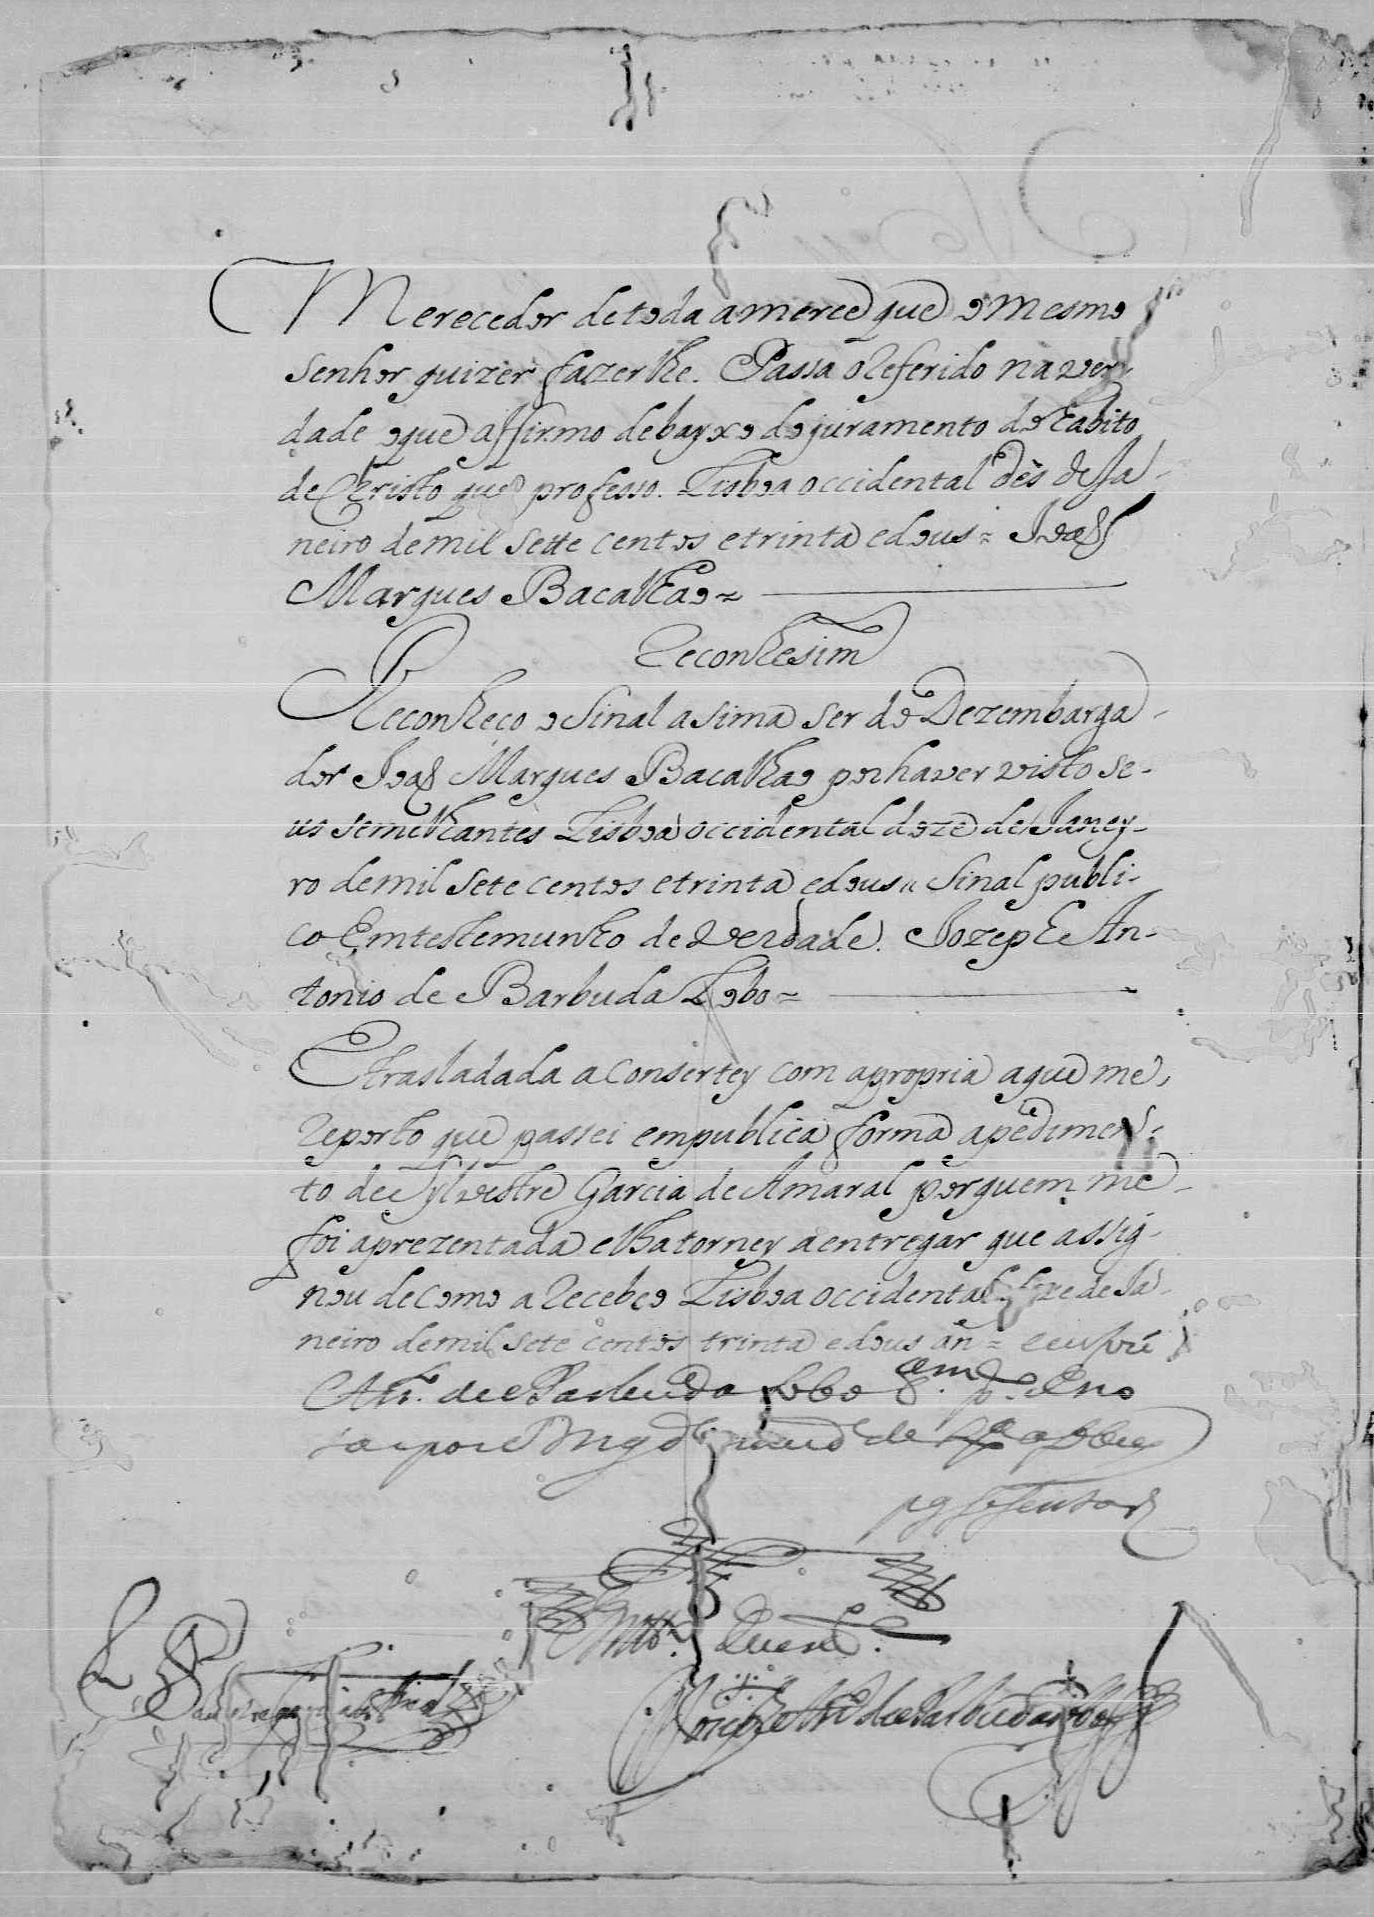 Merecedor de toda a merce que o mesmo
senhor quizer fazerlhe. Passa o referido na ver
dade o que affirmo debayxo do juramento do habito
de Christo que professo. Lisboa occidental dés de Ja-
neiro de mil sette centos e trinta e dous = Joaõ
Marques Bacalhao =
Reconhesim
Reconheço o Sinal asima ser do Dezembarga-
dor Joaõ Marques Bacalhao por haver visto se-
us semelhantes Lisboa occidental doze de Janey-
ro de mil sete centos e trinta e dous = Sinal publi-
co Em testemunho de verdade. Jozeph An-
tonio de Barbuda Lobo =
E trasladada a consertey com a propria a que me
reporto que passei em publica forma a pedimen-
to de Sylvestre Garcia de Amaral por quem me
foi aprezentada e lha torney a entregar que assig-
nou de como a recebeo Lisboa occidental treze de Ja-
neiro de mil sete centos trinta e dous an =
Antº. de Barbuda Lobo